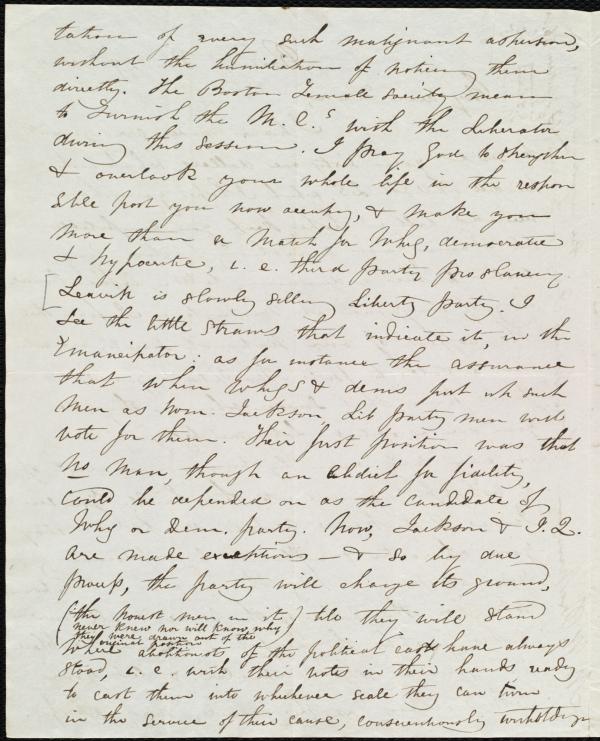 tation of every such malignant aspersion,
without the humiliation of noticing them
directly. The Boston Female Society mean
to furnish the M. C.s with the Liberator
during this session. I pray God to strengthen
& overlook your whole life in the respon
sible post you now occupy, & make you
more than a match for Whig, democratic
& hypocritic, i. e. third party proslavery.
[Leavitt is slowly selling Liberty party. I
see the little straws that indicate it, in the
Emancipator: as for instance the assurance
that when Whigs & dems put up such
men as Wm. Jackson Lib party men will
vote for them. Their first position was that
no man, though an Abdiel for fidelity,
could be depended on as the candidate of
Whig or Dem. party. Now, Jackson & J. Q.
are made exceptions — & so by due
process, the party will change its ground,
(the honest men in it) till they will stand
(never knew nor will know, why
they were drawn out of the
original position
where abolitionists of the political caste have always
stood, i. e. with their votes in their hands ready
to cast them into whichever scale they can turn
in the service of their cause, conscientiously withholding